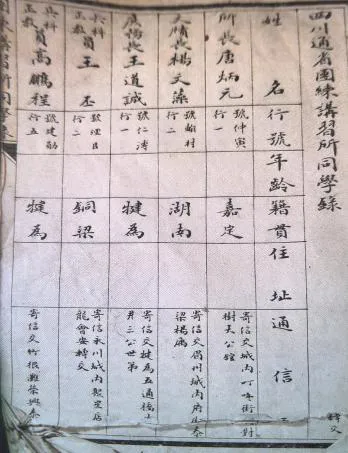 四川通省團練講習所同學錄
姓名 行號 年齡 籍貫 住址 通信
所長唐炳元 號仲寅 行一 嘉定 寄信交城內叮咚街對
樹天公館
大隊長楊文藻 號翰村 行一 湖南 寄信交眉州城內府街泰
梁楊廣
廣揚長王道誠 號仁溥 行一 犍為 寄信交犍為五通橋
井三公世第
兵科正教員王丕 行二 銅梁 寄信永川城內
龍會安轉交
兵科正教員高鵬程 行五 犍為 寄信交竹根灘榮興泰